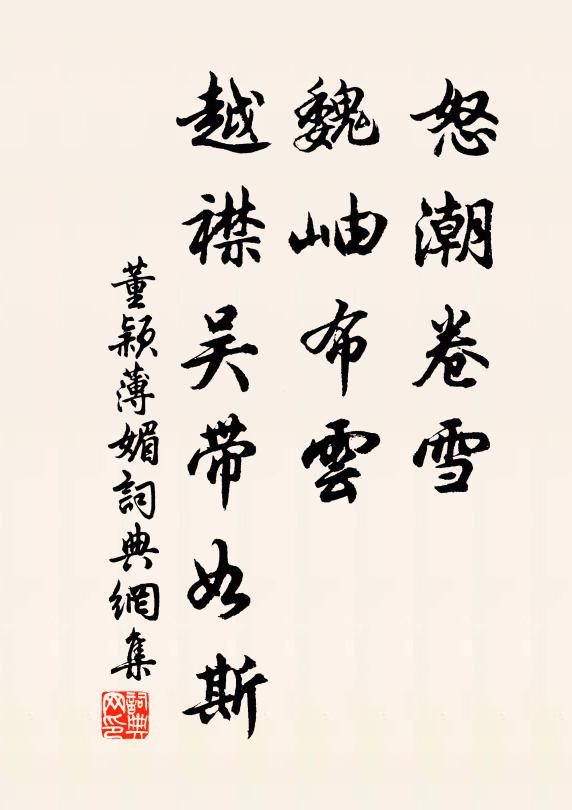 怒潮卷雪
魏岫布雲
越襟吴带如斯
董颖薄媚詞典網集
詞典网印